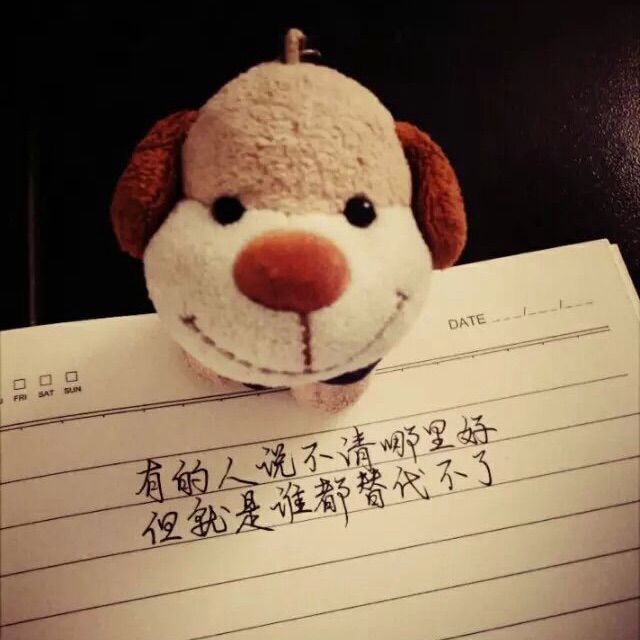 DATE __/__/__
FRI SAT SUN
有的人说不清哪里好
但就是谁都替代不了